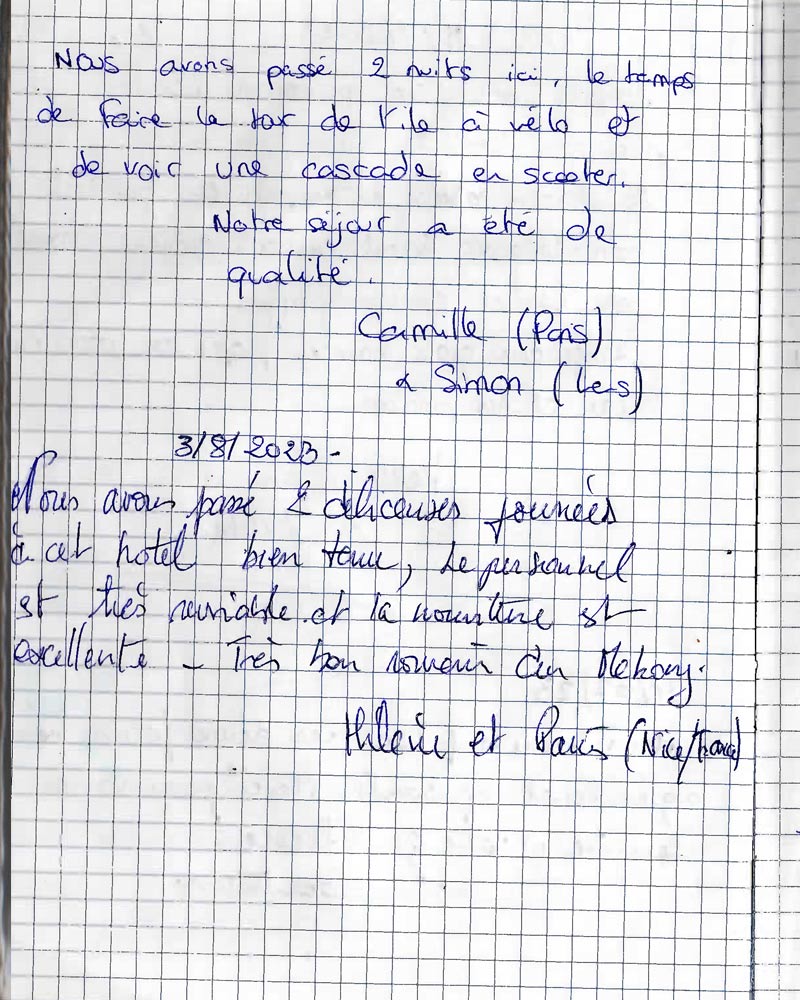 Nous avons passé 2 nuits ici, le temps
de faire le tour de l'île à vélo et
de voir une cascade en scooter.
Notre séjour a été de
qualité.
Camille (Paris)
& Simon
3/8/2023 -
Nous avons passé 2 délicieuses journées
à cet hotel bien tenu, Le personnel
est très serviable et la nourriture est
excellente - Très bon souvenir du Mekong.
et (Nice/France)